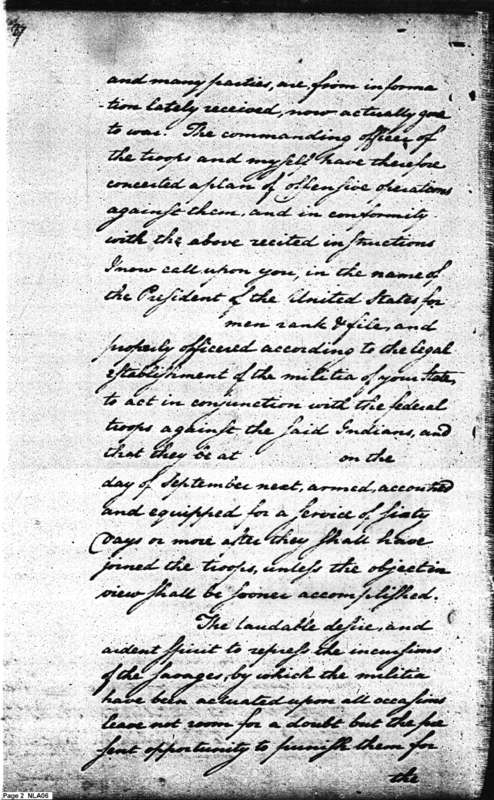 and many parties, are, from informa
-tion lately received, now actually gone
to war. The commanding officer of
the troops and myself have therefore
concerted a plan of offensive operations
against them, and in conformity
with the above recited instructions
I now call upon you, in the name of
the President of the United States for
men rank & file, and
properly officered according to the legal
establishment of the militia of your State,
to act in conjunction with the federal
troops against the said Indians, and
that they be at on the
day of September next, armed, accoutred
and equipped for a service of sixty
days or more after they shall have
joined the troops, unless the object in
view shall be sooner accomplished.
The laudable desire, and
ardent spirit to repress the incursions
of the savages, by which the militia
have been actuated upon all occasions
leave not room for a doubt but the pre
sent opportunity to punish them for
the
Page 2 NLA06